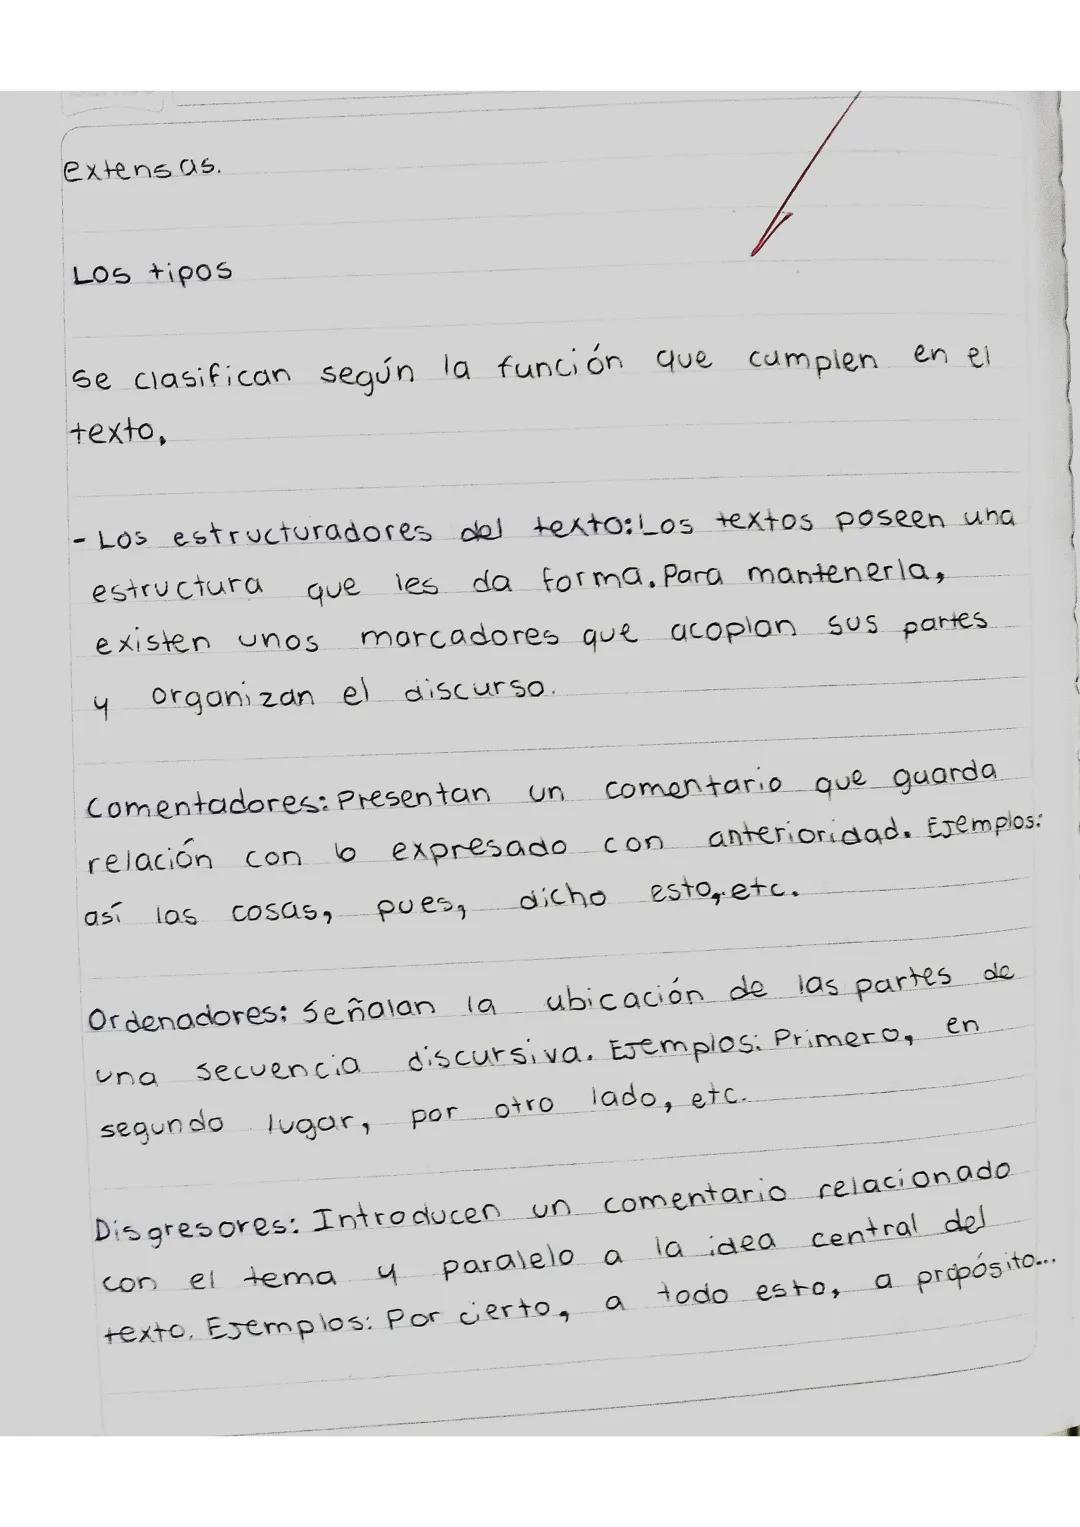 extensas.
Los tipos
Se clasifican según la función que cumplen en el
texto,
- Los estructuradores del texto: Los textos poseen una
estructura que les da forma. Para mantenerla,
existen unos marcadores que acoplan sus partes
y organizan el discurso.
Comentadores: Presentan un comentario que guarda
relación con lo expresado con anterioridad. Ejemplos:
así las cosas, pues, dicho esto, etc.
Ordenadores: Señalan la ubicación de las partes de
una secuencia discursiva. Ejemplos: Primero, en
segundo lugar, por otro lado, etc.
Disgresores: Introducen un comentario relacionado
con el tema y paralelo a la idea central del
texto. Ejemplos: Por cierto, a todo esto, a propósito...